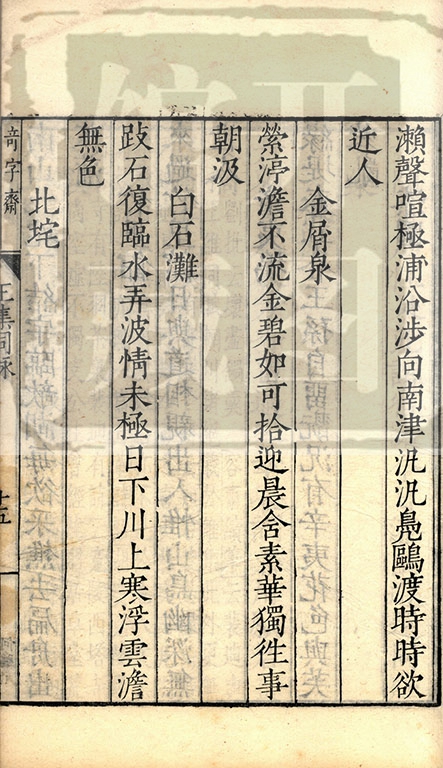 瀨聲喧極浦沿涉向南津汎汎鳧鷗渡時時欲
近人
金屑泉
縈渟澹不流金碧如可拾迎晨含素華獨徃事
朝汲
白石灘
跂石復臨水弄波情未極日下川上寒浮雲澹
無色
北垞
奇字齋
王集同詠
十五